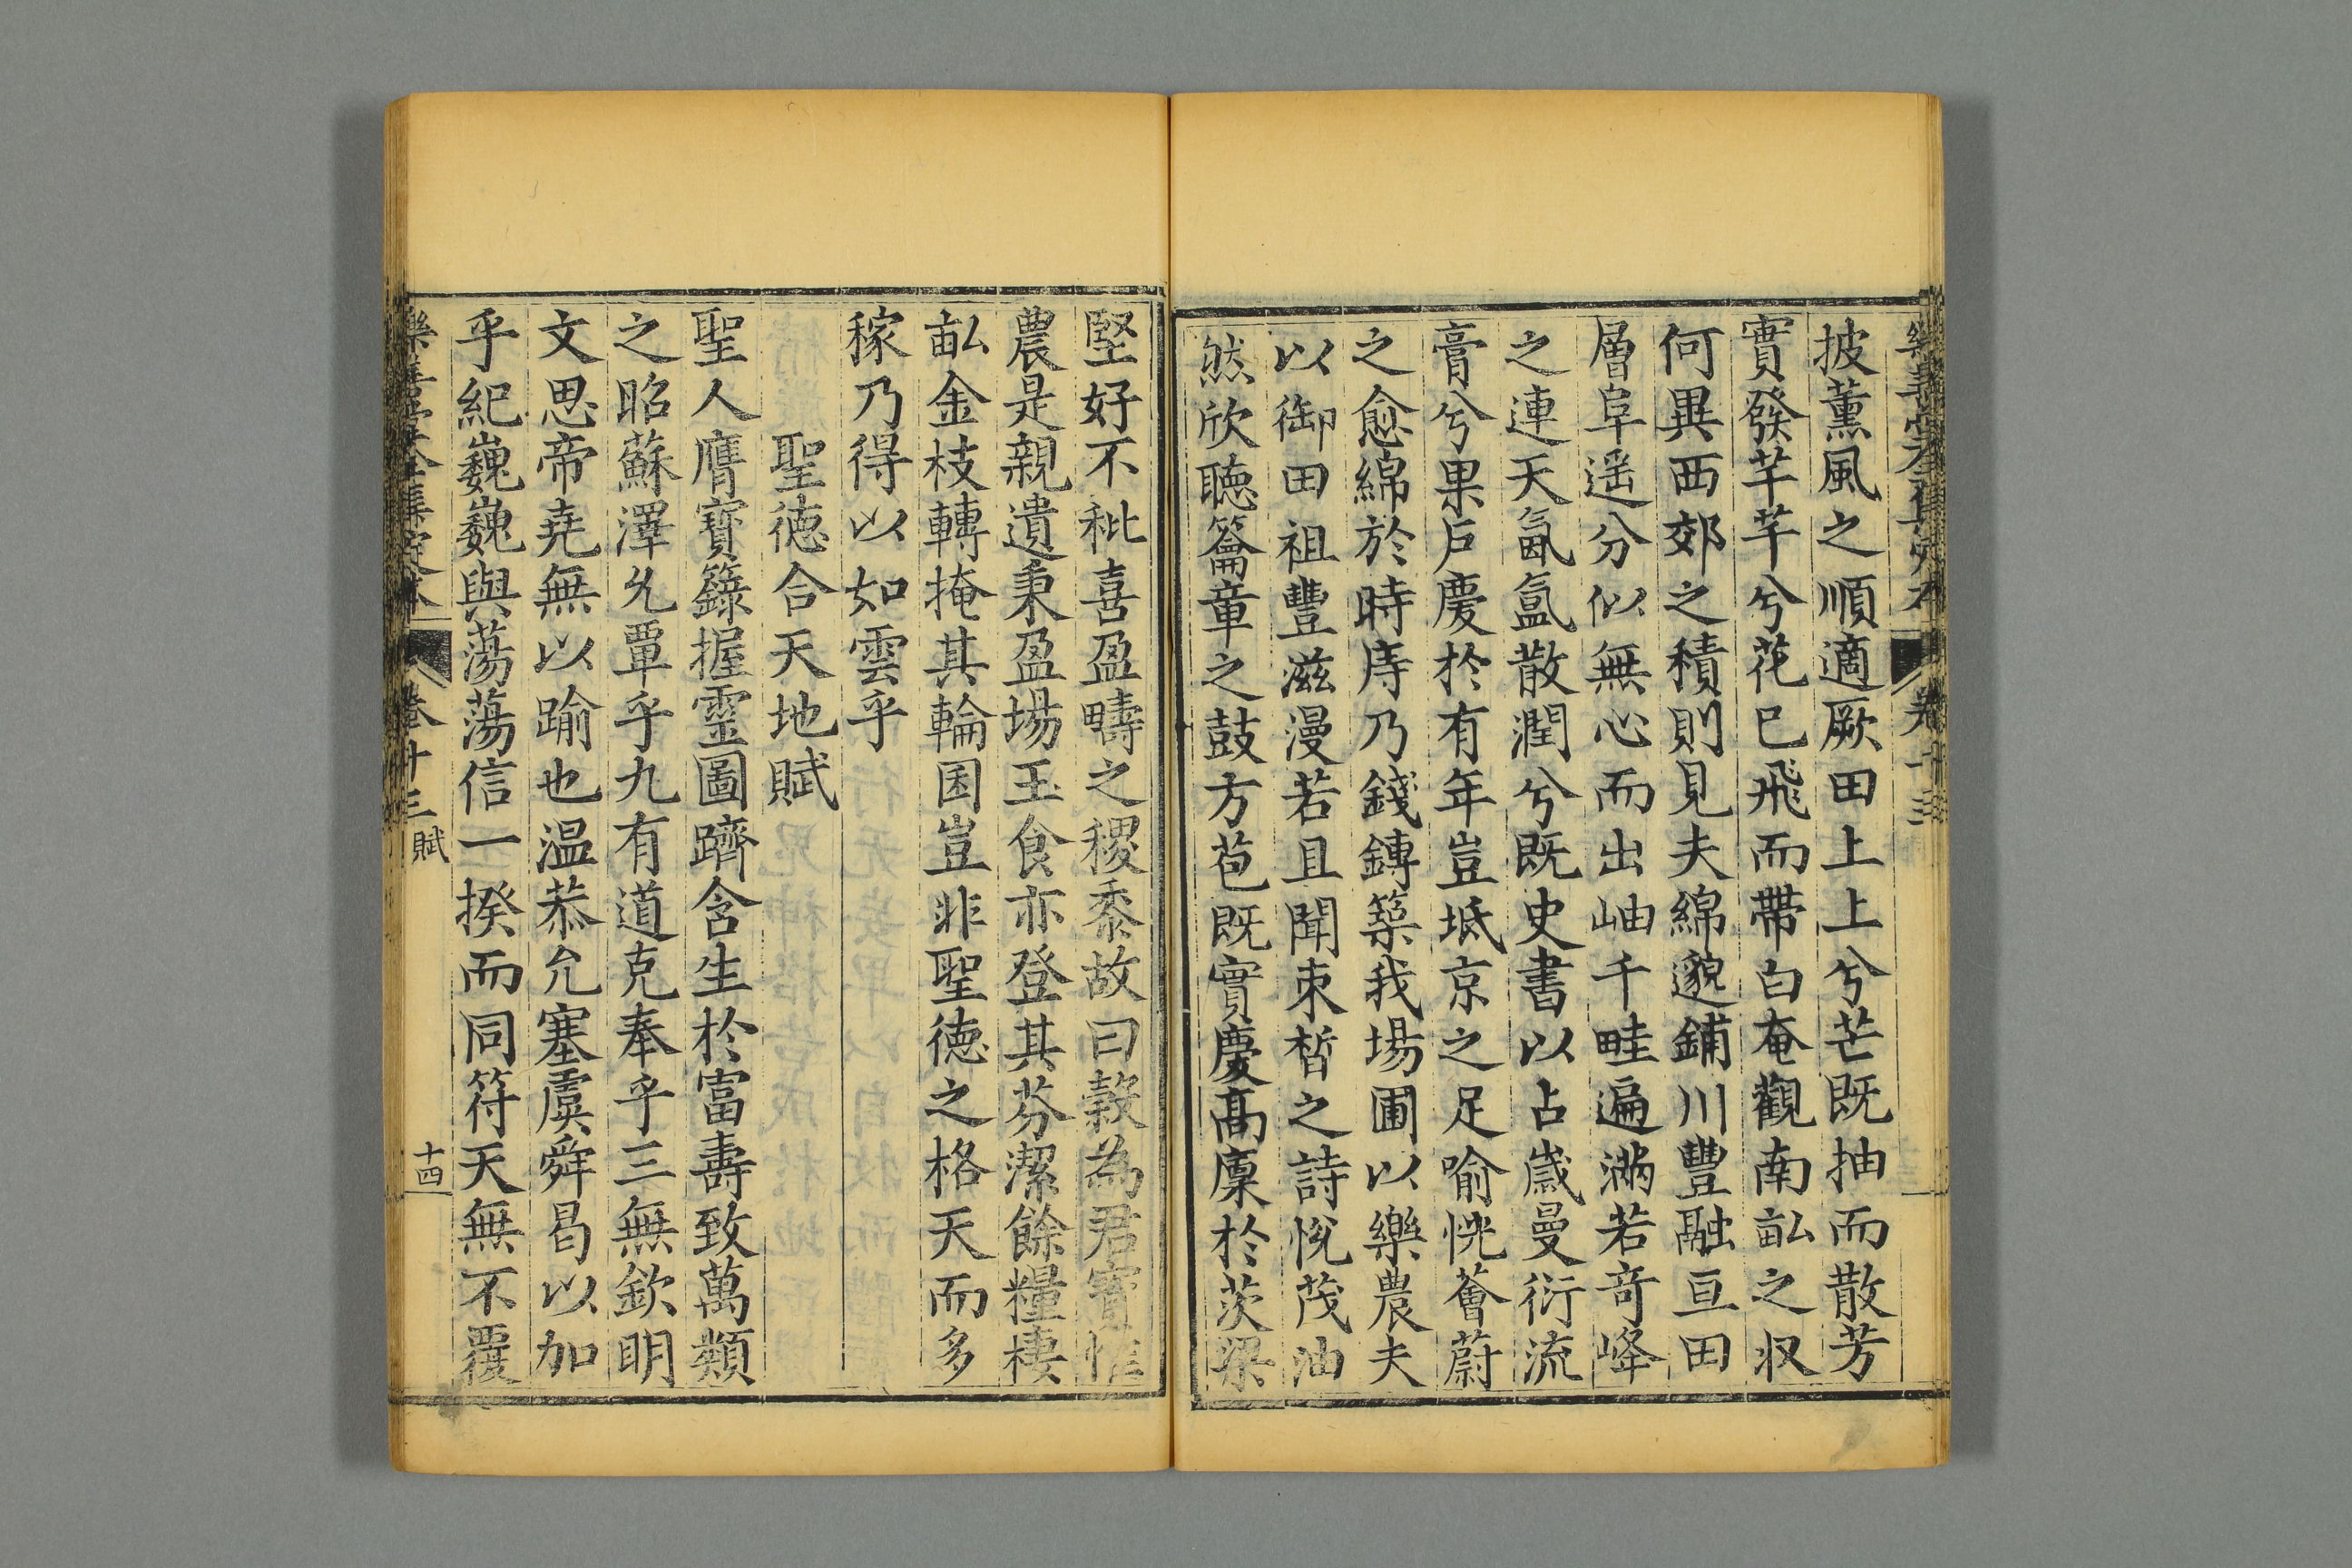 樂善堂全集定本 卷十三
披薰風之順適厥田上上兮芒既抽而散芳
實發芊芊兮花已飛而帶白奄觀南畝之収
何異西郊之積則見夫綿邈鋪川豐融亘田
層阜遥分似無心而出岫千畦遍滿若竒峰
之連天氤氳散潤兮既史書以占歲曼衍流
膏兮果户慶於有年豈坻京之足喻恍薈蔚
之愈綿於時庤乃錢鎛築我場圃以樂農夫
以御田祖豐滋漫若且聞束晳之詩悦茂油
然欣聽籥章之鼓方苞既實慶髙廩於茨梁
堅好不秕喜盈疇之稷黍故曰榖為君寳惟
農是親遺秉盈場玉食亦登其芬潔餘糧棲
畝金枝轉掩其輪囷豈非聖德之格天而多
稼乃得以如雲乎
聖德合天地賦
聖人膺寶籙握靈圖躋含生於富壽致萬類
之昭蘇澤允覃乎九有道克奉乎三無欽明
文思帝堯無以踰也温恭允塞虞舜曷以加
乎紀巍巍與蕩蕩信一揆而同符天無不覆
樂善堂全集定本 卷十三 賦 十四